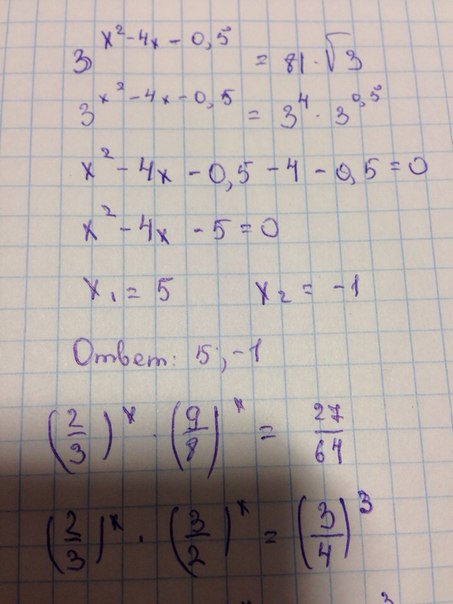 3^(x²-4x-0,5) = 81·√3
3^(x²-4x-0,5) = 3⁴·3^0,5
x²-4x-0,5-4-0,5=0
x²-4x-5=0
x₁=5 x₂=-1
Ответ: 5;-1
(2/3)^x · (9/8)^x = 27/64
(2/3)^x · (3/2)^x = (3/4)³